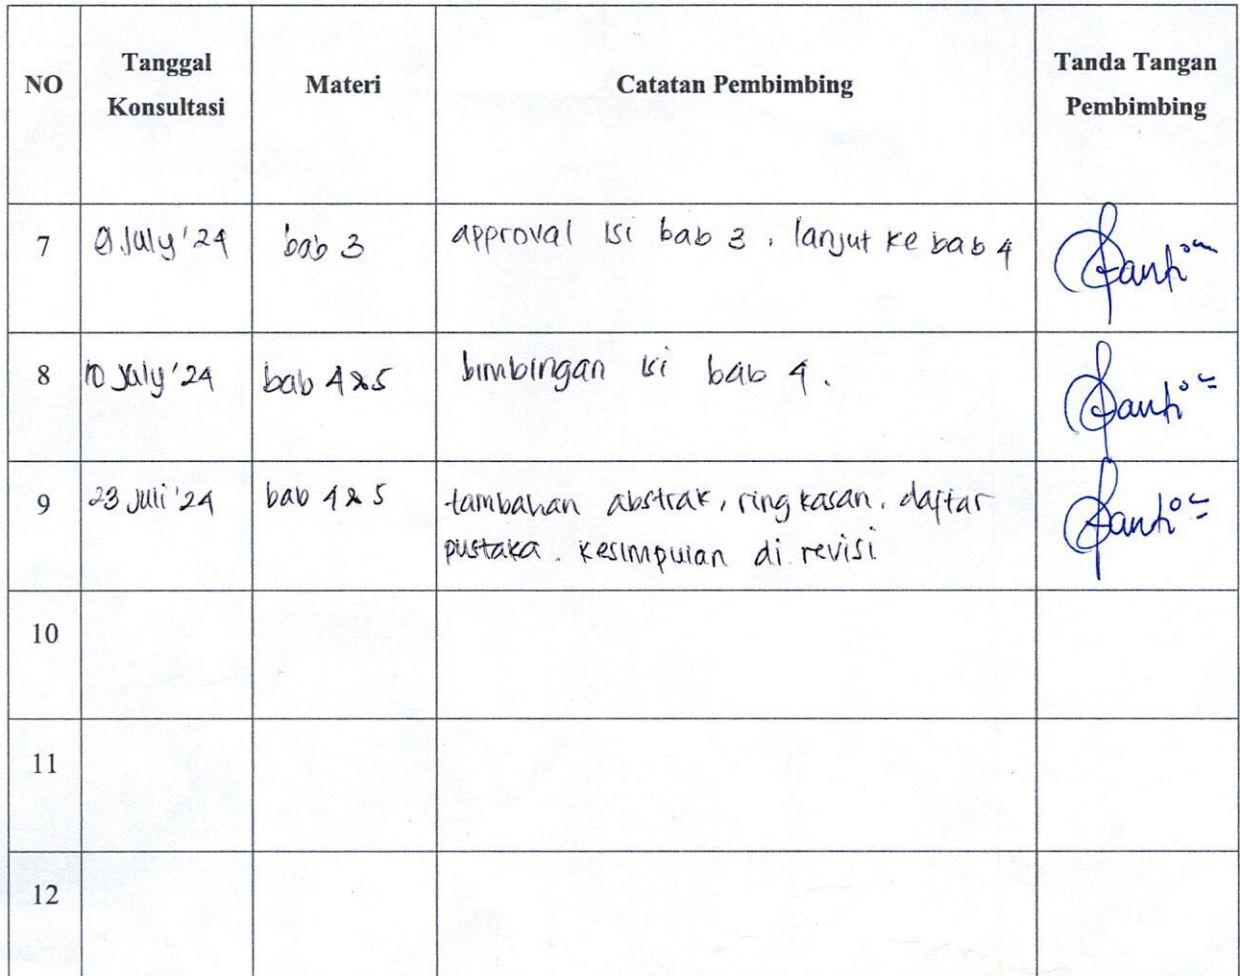 NO Tanggal Konsultasi Materi Catatan Pembimbing Tanda Tangan Pembimbing
7 9 July '24 bab 3 approval isi bab 3, lanjut ke bab 4
8 10 July '24 bab 4&5 bimbingan isi bab 4.
9 23 Juli '24 bab 4&5 tambahan abstrak, ringkasan, daftar
pustaka. kesimpulan di revisi
10
11
12